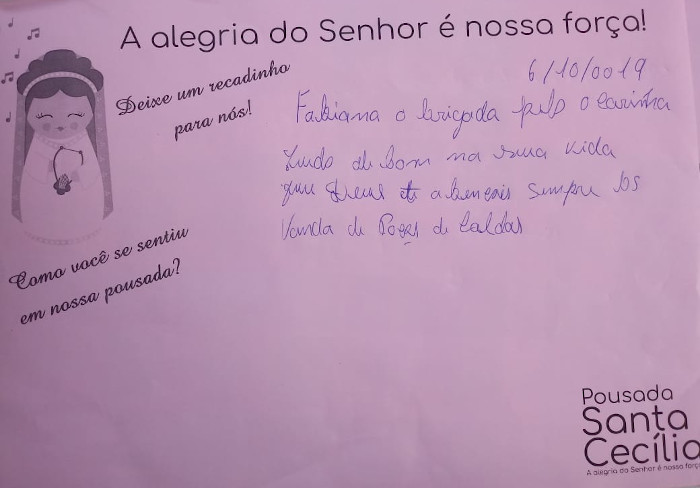 A alegria do Senhor é nossa força!
6/10/0019
Deixe um recadinho
para nós!
Fabiana o brigada pelo o carinha
tudo de bom na sua vida
que Deus te abençois sempre bjs
Vanda de Poços de Caldas
Como você se sentiu
em nossa pousada?
Pousada
Santa
Cecília
A alegria do Senhor é nossa força